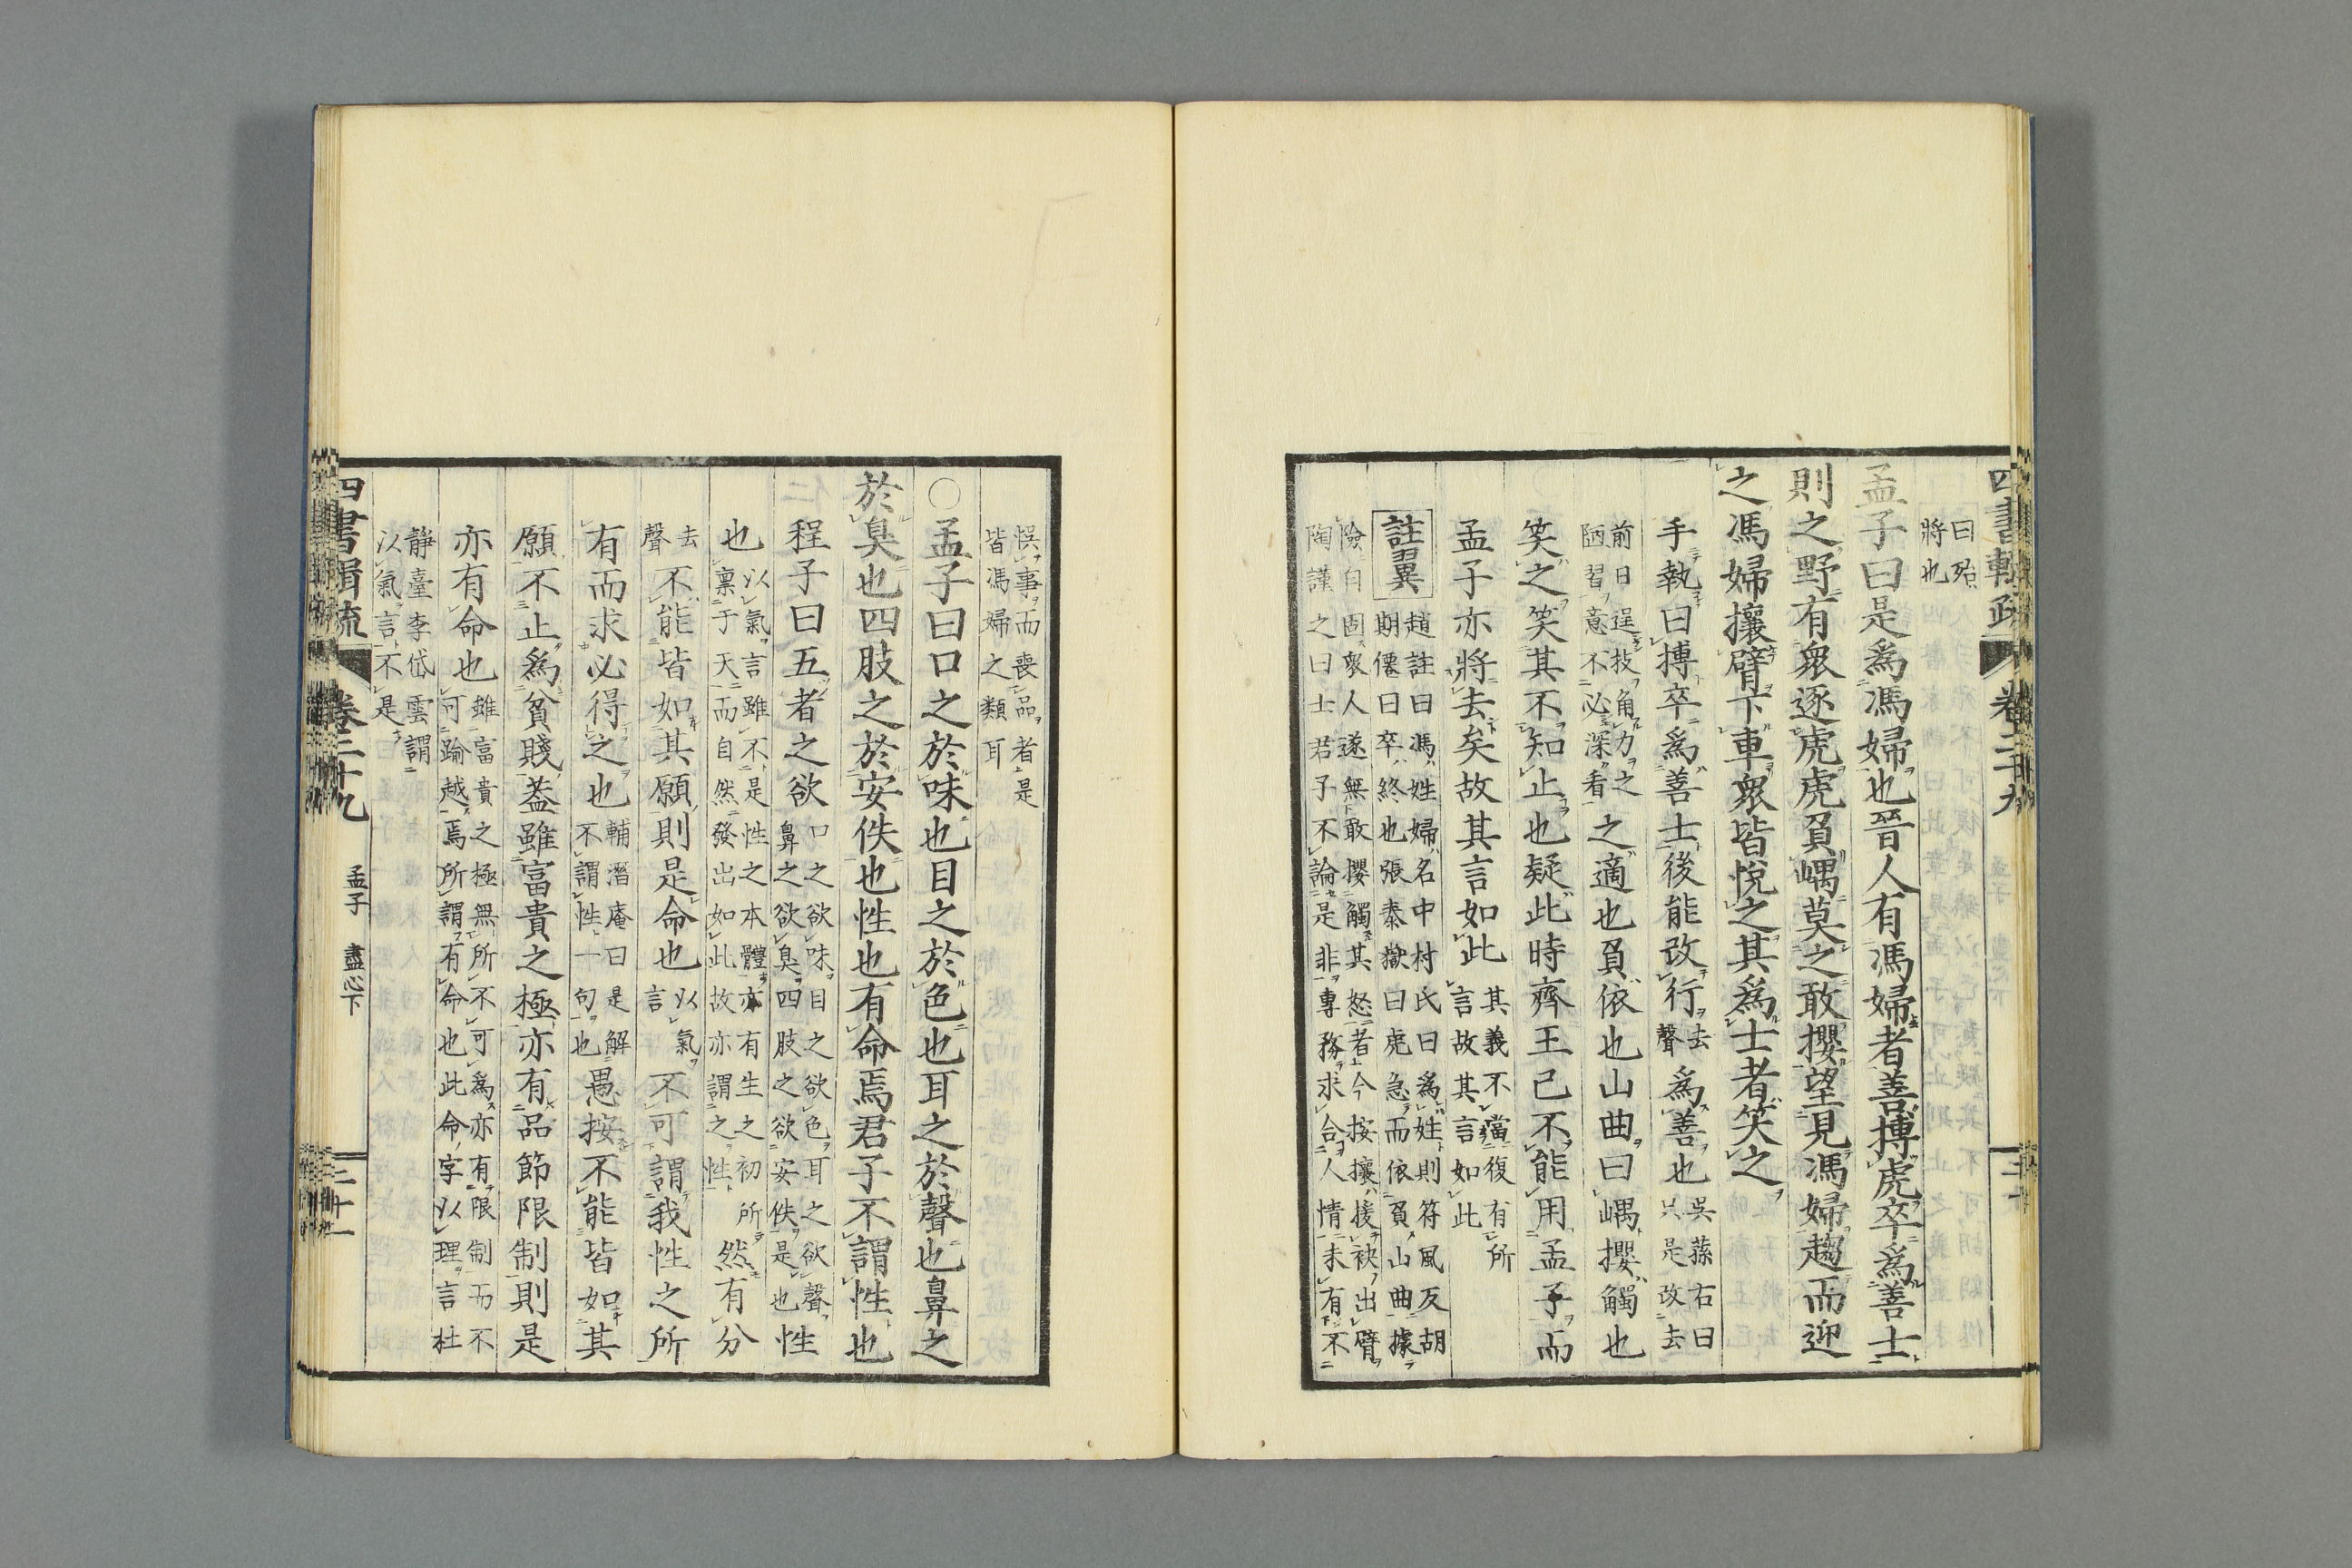 四書輯疏 卷二十九
曰殆
將也
孟子曰是爲馮婦也晉人有馮婦者善搏虎卒爲善士
則之野有衆逐虎虎負嵎莫之敢攖望見馮婦趨而迎
之馮婦攘臂下車衆皆悅之其爲士者笑之
手執曰搏卒爲善士後能改行去聲爲善也吳蓀右曰只是改去
前日逞技角力之陋習意不必深看之適也負依也山曲曰嵎攖觸也
笑之笑其不知止也疑此時齊王已不能用孟子而
孟子亦將去矣故其言如此其義不當復有所言故其言如此
註異 趙註曰馮姓婦名中村氏曰爲姓則符風反胡
期僊曰卒終也張泰嶽曰虎急而依負山曲據
險自固衆人遂無敢攖觸其怒者今按攘援袂出臂
陶謹之曰士君子不論是非專務求合人情未有不
悞事而喪品者是
皆馮婦之類耳
○孟子曰口之於味也目之於色也耳之於聲也鼻之
於臭也四肢之於安佚也性也有命焉君子不謂性也
程子曰五者之欲口之欲味目之欲色耳之欲聲鼻之欲臭四肢之欲安佚是也性
也以氣言雖不是性之本體亦有生之初所稟于天而自然發出如此故亦謂之性然有分
去聲不能皆如其願則是命也以氣言不可謂我性之所
有而求必得之也輔潛庵曰是解不謂性一句也愚按不能皆如其
願不止爲貧賤蓋雖富貴之極亦有品節限制則是
亦有命也雖富貴之極無所不可爲亦有限制而不可踰越焉所謂有命也此命字以理言杜
靜臺李岱雲謂
以氣言不是
四書輯疏 卷二十九 孟子 盡心下 二十一